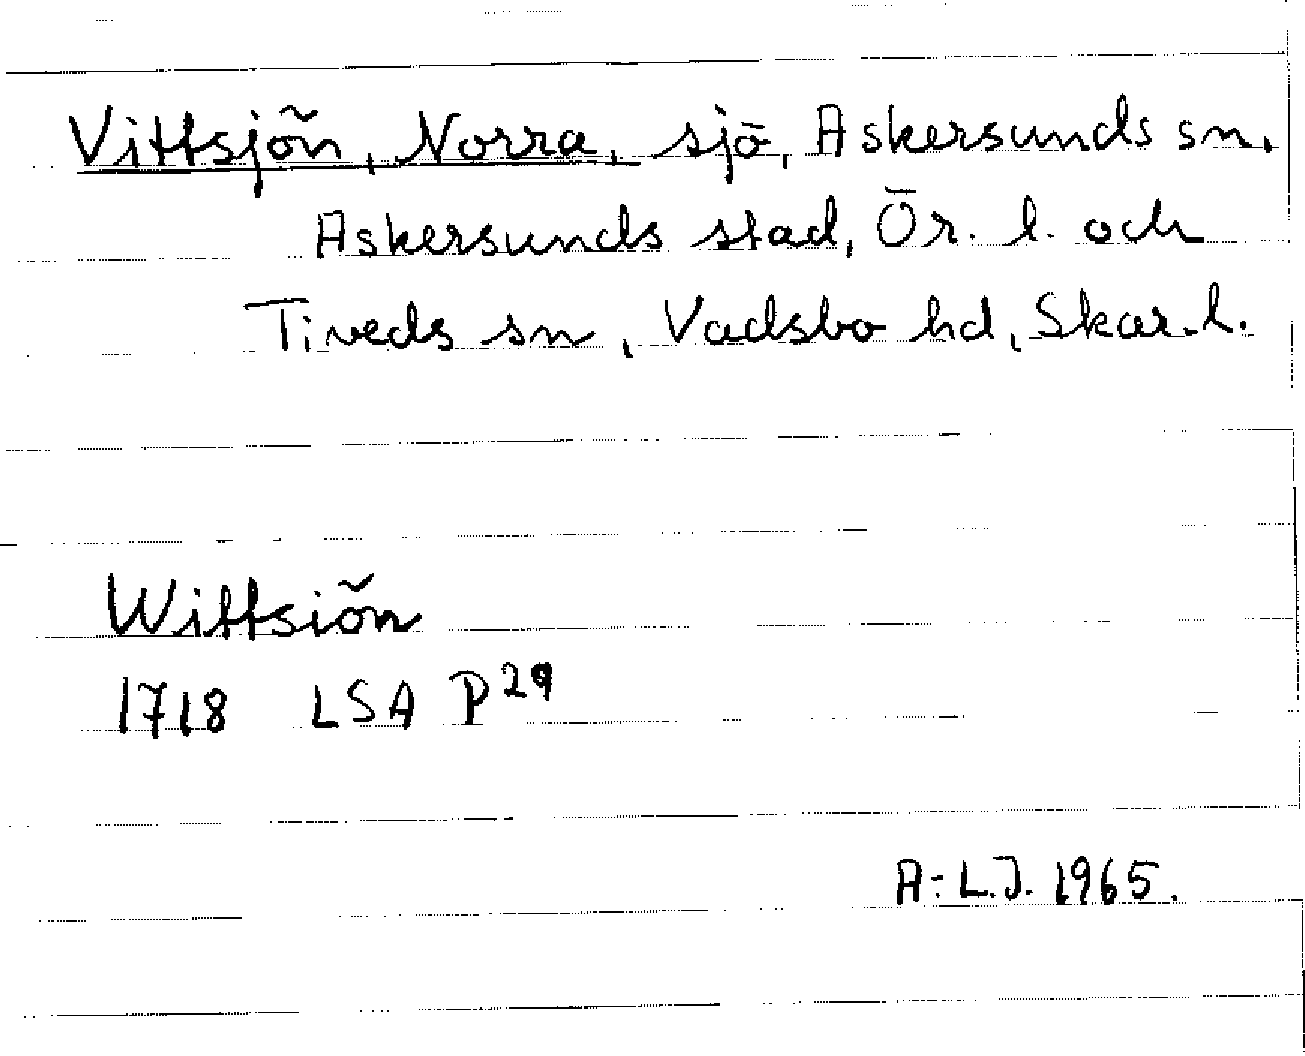 Vittsjön, Norra, sjö, Askersunds sn,
Askersunds stad, Ör. l. och
Tiveds sn, Vadsbo hd, Skar. l.
Wittsiön
1718 LSA P29
A-L.J. 1965.